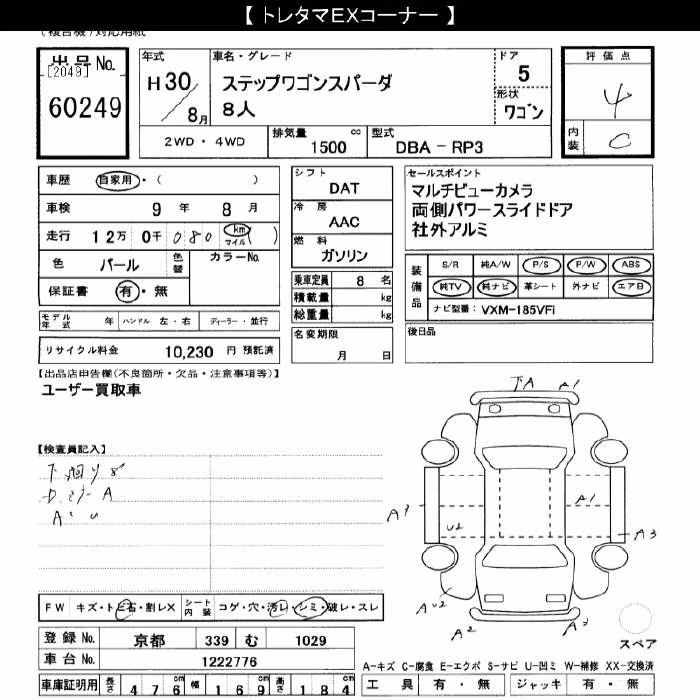 【 トレタマEXコーナー 】
出品No.
[2049]
60249
年式
H30/8月
車名・グレード
ステップワゴンスパーダ
8人
ドア
5
形状
ワゴン
評価点
4
内装
C
2WD・4WD
排気量 cc
1500
型式
DBA－RP3
車歴 自家用・( )
車検 9年 8月
走行 12万 0千 080 km マイル ( )
色 パール 色替 カラーNo.
保証書 有・無
シフト
DAT
冷房
AAC
燃料
ガソリン
セールスポイント
マルチビューカメラ
両側パワースライドドア
社外アルミ
乗車定員 8 名
積載量 kg
総重量 kg
装備品
S/R 純A/W P/S P/W ABS
純TV 純ナビ 革シート 外ナビ エアB
ナビ型番： VXM-185VFi
モデル年式 年 ハンドル 左・右 ディーラー・並行
リサイクル料金 10,230 円 預託済
名変期限
月 日
後日品
【出品店申告欄(不良箇所・欠品・注意事項等)】
ユーザー買取車
【検査員記入】
下廻りS
D.ミラーA
下A A1
A1
A3
U2
A3
AU2
A2
A3
スペア
FW キズ・トビ石・割レX シート内装 コゲ・穴・汚レ・シミ・破レ・スレ
登録No. 京都 339 む 1029
車台No. 1222776
車庫証明用 長さ 476cm 幅 169cm 高さ 184cm
A-キズ C-腐食 E-エクボ S-サビ U-凹ミ W-補修 XX-交換済
工具 有・無 ジャッキ 有・無